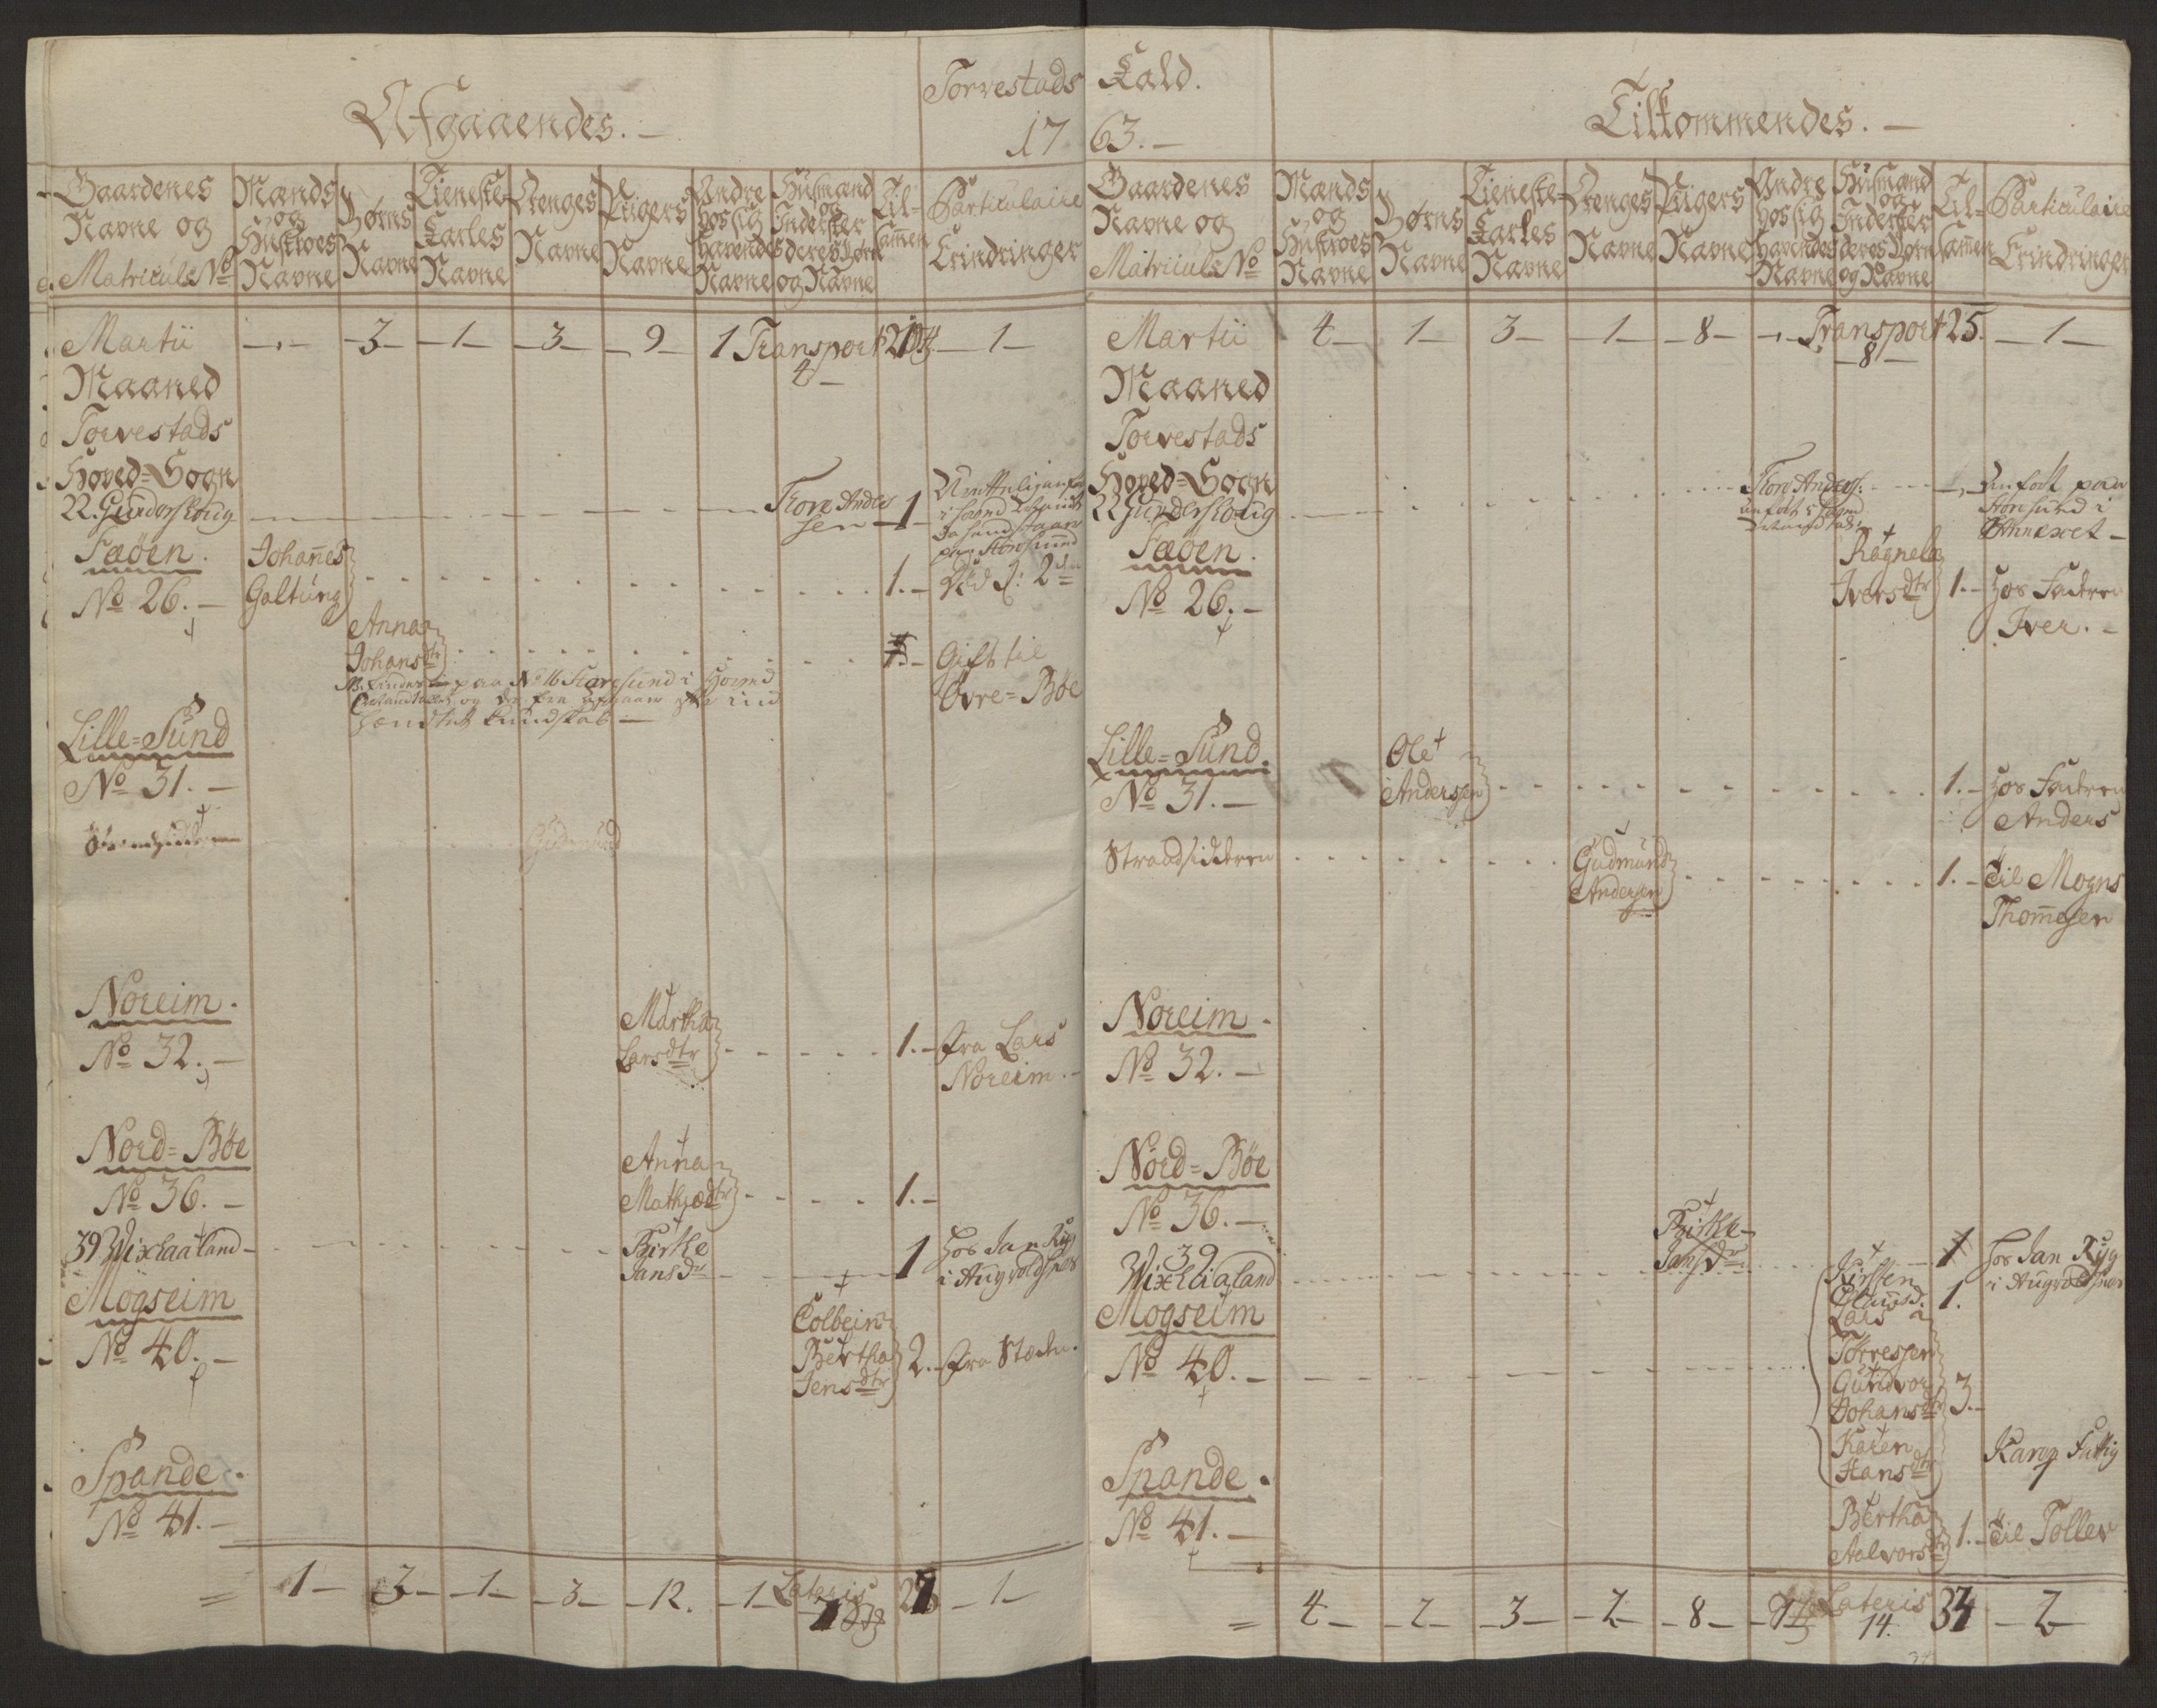 Torvestads
Afgaaendes. —
17
Gaardenes Navne og Matriculs No
Mænds og Hustroes Navne
Børns Navne
Tieneste Karles Navne
Drenges Navne
Piigers Navne
Andre hos sig havendes Navne
Husmænd og Inderster deres Børn og Navne
Til-sam̄en
Particulaire Erindringer
Martii — — 3 — 1 — 3 — 9 — 1 Transport — 1 —
4 —
Maaned
Torvestads
Hoved=Sogn
22. Gunderskoug
Tore Ander
sen — 1
Fæøen.
No 26. —
Johan̄es
Galtung
1. —
Anna
Johansdtr
Gift til
Øvre=Bøe
Lille=Sund
No 31. —
Gudmund
Noreim.
No 32. —
Martha
Larsdtr
1. — fra Lars
Noreim. —
Nord=Bøe
No 36. —
Anna
1. —
39 Wixlaaland —
Birthe
Jansdr
1
hos Jan Ryg
i Augvoldsnes
Mogseim
No 40. —
Colbein
Bertha
Jensdtr
2. — fra Stædn.
Spande.
No 41. —
= 1 — 3 — 1 — 3 — 12. — 1 — Lateris — 1 —
Kald.
Tilkommendes. —
63. —
Gaardenes Navne og Matriculs No
Mænds og Hustroes Navne
Børns Navne
Tieneste Karles Navne
Drenges Navne
Piigers Navne
Andre hos sig havendes Navne
Husmænd og Inderster deres Børn og Navne
Til-sam̄en
Particulaire Erindringer
Martii 4 — 1 — 3 — 1 — 8 — — Transport 25. — 1 —
8 —
Maaned
Torvestads
Hoved=Sogn
22 Gunderskoug
Tore Anders:
paa
Storesund i
Annexet —
Fæøen.
No 26. —
Ragnela
Iversdtr
1. — hos Faderen
Iver. —
Lille=Sund.
No 31. —
Ole
Andersen
1. — hos Faderen
Anders
Strandsidderen
Gudmund
Andersen
1. — til Mogns
Thom̄esen
Noreim.
No 32. —
Nord=Bøe
No 36. —
39
Wixlaaland
Birthe
Jansdr
1 hos Jan Ryg
i Augvoldsnes
Mogseim
No 40. —
Kirsten
1.
Lars
Torressen
Gundvor
Johansdtr
3. —
Karen
Hansdtr
Spande.
No 41. —
Bertha
Aolvorsdtr
1. — til Tollev
= 4 — 2 — 3 — 2 — 8 — Lateris 34 — 2 —
14.